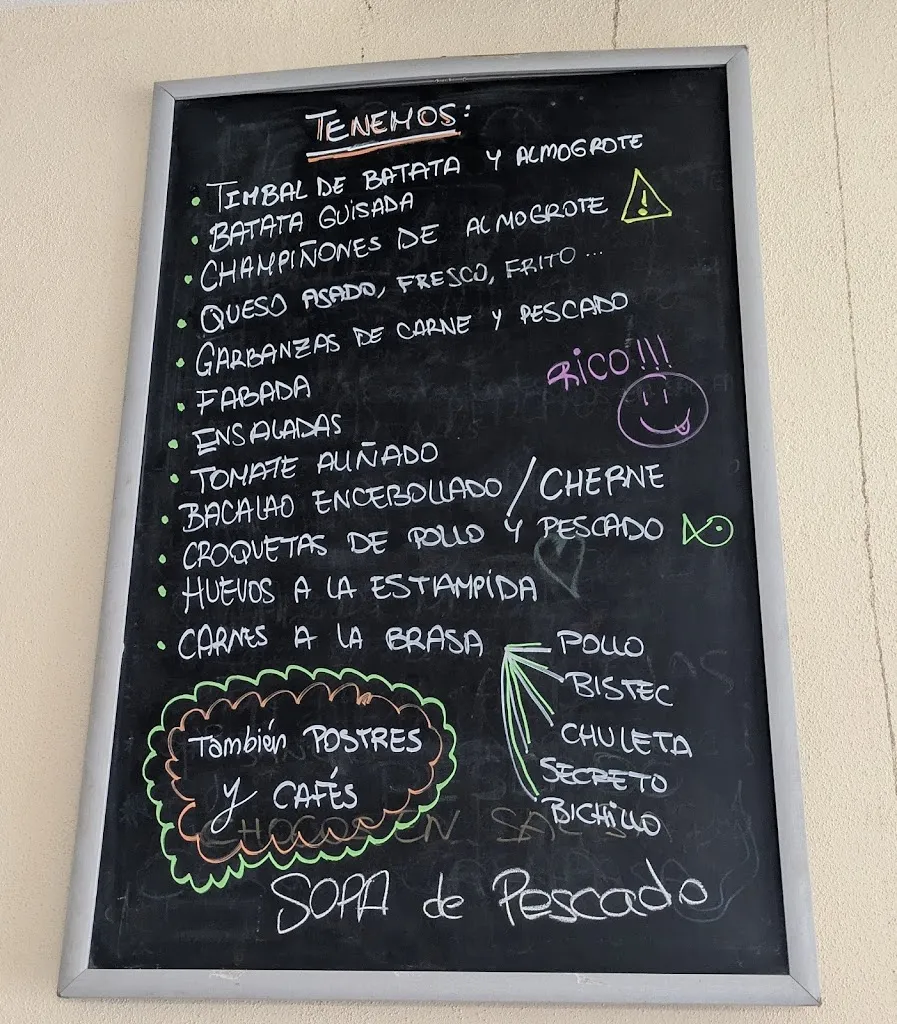 TENEMOS:
• TIMBAL DE BATATA Y ALMOGROTE
• BATATA GUISADA
• CHAMPIÑONES DE ALMOGROTE
• QUESO ASADO, FRESCO, FRITO ...
• GARBANZAS DE CARNE Y PESCADO
• FABADA
RICO!!!
• ENSALADAS
• TOMATE ALIÑADO
• BACALAO ENCEBOLLADO / CHERNE
• CROQUETAS DE POLLO Y PESCADO
• HUEVOS A LA ESTAMPIDA
• CARNES A LA BRASA
POLLO
BISTEC
CHULETA
SECRETO
BICHILLO
También POSTRES
y CAFÉS
CHOCOS EN SALSA
SOPA de Pescado